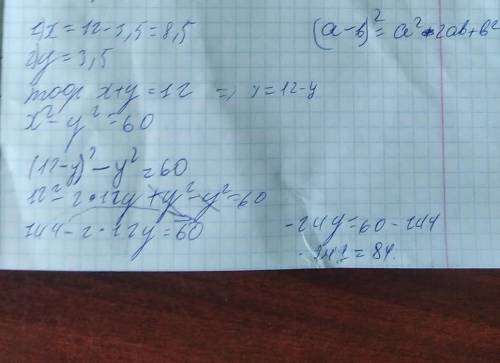 1) x = 12 - 3,5 = 8,5
2) y = 3,5
x + y = 12 => x = 12 - y
x² - y² = 60
(12 - y)² - y² = 60
12² - 2 • 12y + y² - y² = 60
144 - 2 • 12y = 60
(a - b)² = a² - 2ab + b²
-24y = 60 - 144
= 84.